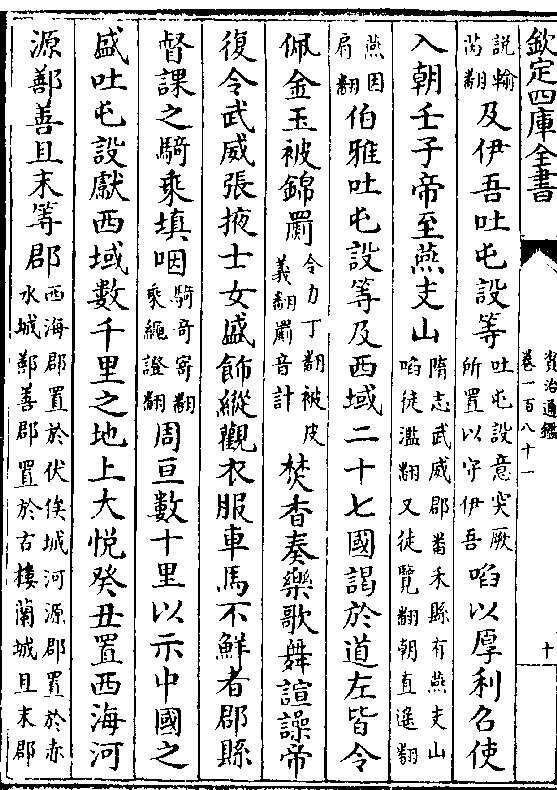 欽定四庫全書
資治通鑑
卷一百八十一
十
説輸
芮翻
及伊吾吐屯設等
吐屯設意突厥
所置以守伊吾
啗以厚利召使
入朝壬子帝至燕支山
隋志武威郡番禾縣有燕支山
啗徒濫翻又徒覽翻朝直遥翻
燕因
肩翻
伯雅吐屯設等及西域二十七國謁於道左皆令
佩金玉被錦罽
令力丁翻被皮
義翻罽音計
焚香奏樂歌舞諠譟帝
復令武威張掖士女盛飾縱觀衣服車馬不鮮者郡縣
督課之騎乗填咽
騎奇寄翻
乘繩證翻
周亘數十里以示中國之
盛吐屯設獻西域數千里之地上大悅癸丑置西海河
源鄯善且末等郡
西海郡置於伏俟城河源郡置於赤
水城鄯善郡置於古樓蘭城且末郡